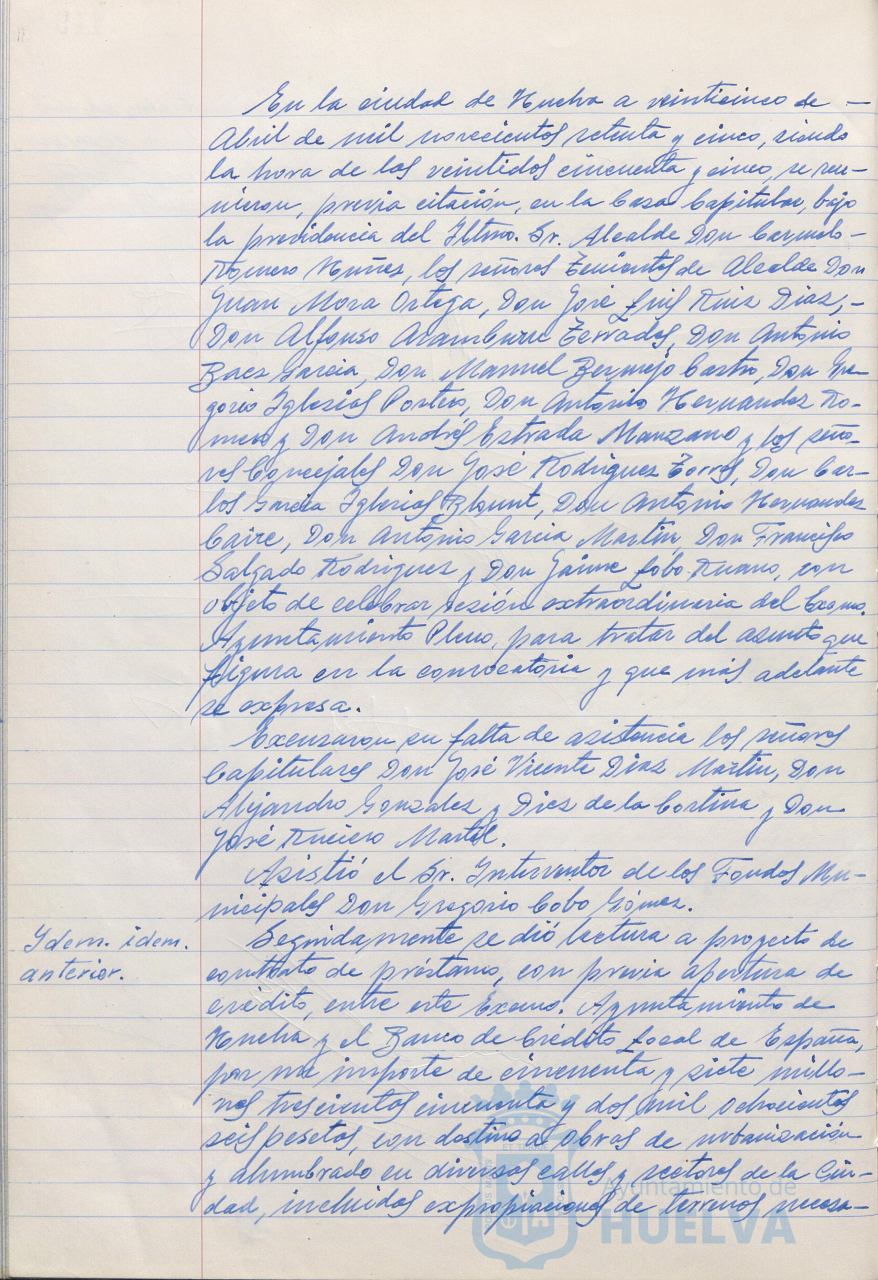 En la ciudad de Huelva a veinticinco de —
Abril de mil novecientos setenta y cinco, siendo
la hora de las veintidos cincuenta y cinco, se reu-
nieron, previa citación, en la Casa Capitular, bajo
la presidencia del Iltmo. Sr. Alcalde Don Carmelo —
Romero Nuñez, los señores Tenientes de Alcalde Don
Juan Mora Ortega, Don José Luis Ruiz Diaz, —
Don Alfonso Aramburu Terrados, Don Antonio
Baez Garcia, Don Manuel Bermejo Castro, Don Gre-
gorio Iglesias Portero, Don Antonio Hernandez Ro-
mero y Don Andrés Estrada Manzano y los seño-
res Concejales Don José Rodriguez Torres, Don Car-
los Garcia Iglesias Blount, Don Antonio Hernandez
Caire, Don Antonio Garcia Martin Don Francisco
Salgado Rodriguez y Don Jaime Lobo Ruano, con
objeto de celebrar sesión extraordinaria del Excmo.
Ayuntamiento Pleno, para tratar del asunto que
figura en la convocatoria y que más adelante
se expresa.
Excusaron su falta de asistencia los señores
Capitulares Don José Vicente Diaz Martin, Don
Alejandro Gonzalez y Diez de la Cortina y Don
José Martel.
Asistió el Sr. Interventor de los Fondos Mu-
nicipales Don Gregorio Cobo Gómez.
Ydem. idem.
anterior.
Seguidamente se dió lectura a proyecto de
contrato de préstamo, con previa apertura de
crédito, entre este Excmo. Ayuntamiento de
Huelva y el Banco de Crédito Local de España,
por un importe de cincuenta y siete millo-
nes trescientos cincuenta y dos mil ochocientos
seis pesetas, con destino a obras de urbanización
y alumbrado en diversas calles y sectores de la Ciu-
dad, incluidos expropiaciones de terrenos necesa-
Ayuntamiento de
HUELVA